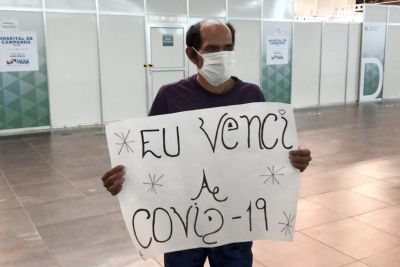 HOSPITAL DE
CAMPANHA
PARÁ
HOSPITAL DE
CAMPANHA
PARÁ
BLOCO
D
EU Venci
A
COVID-19